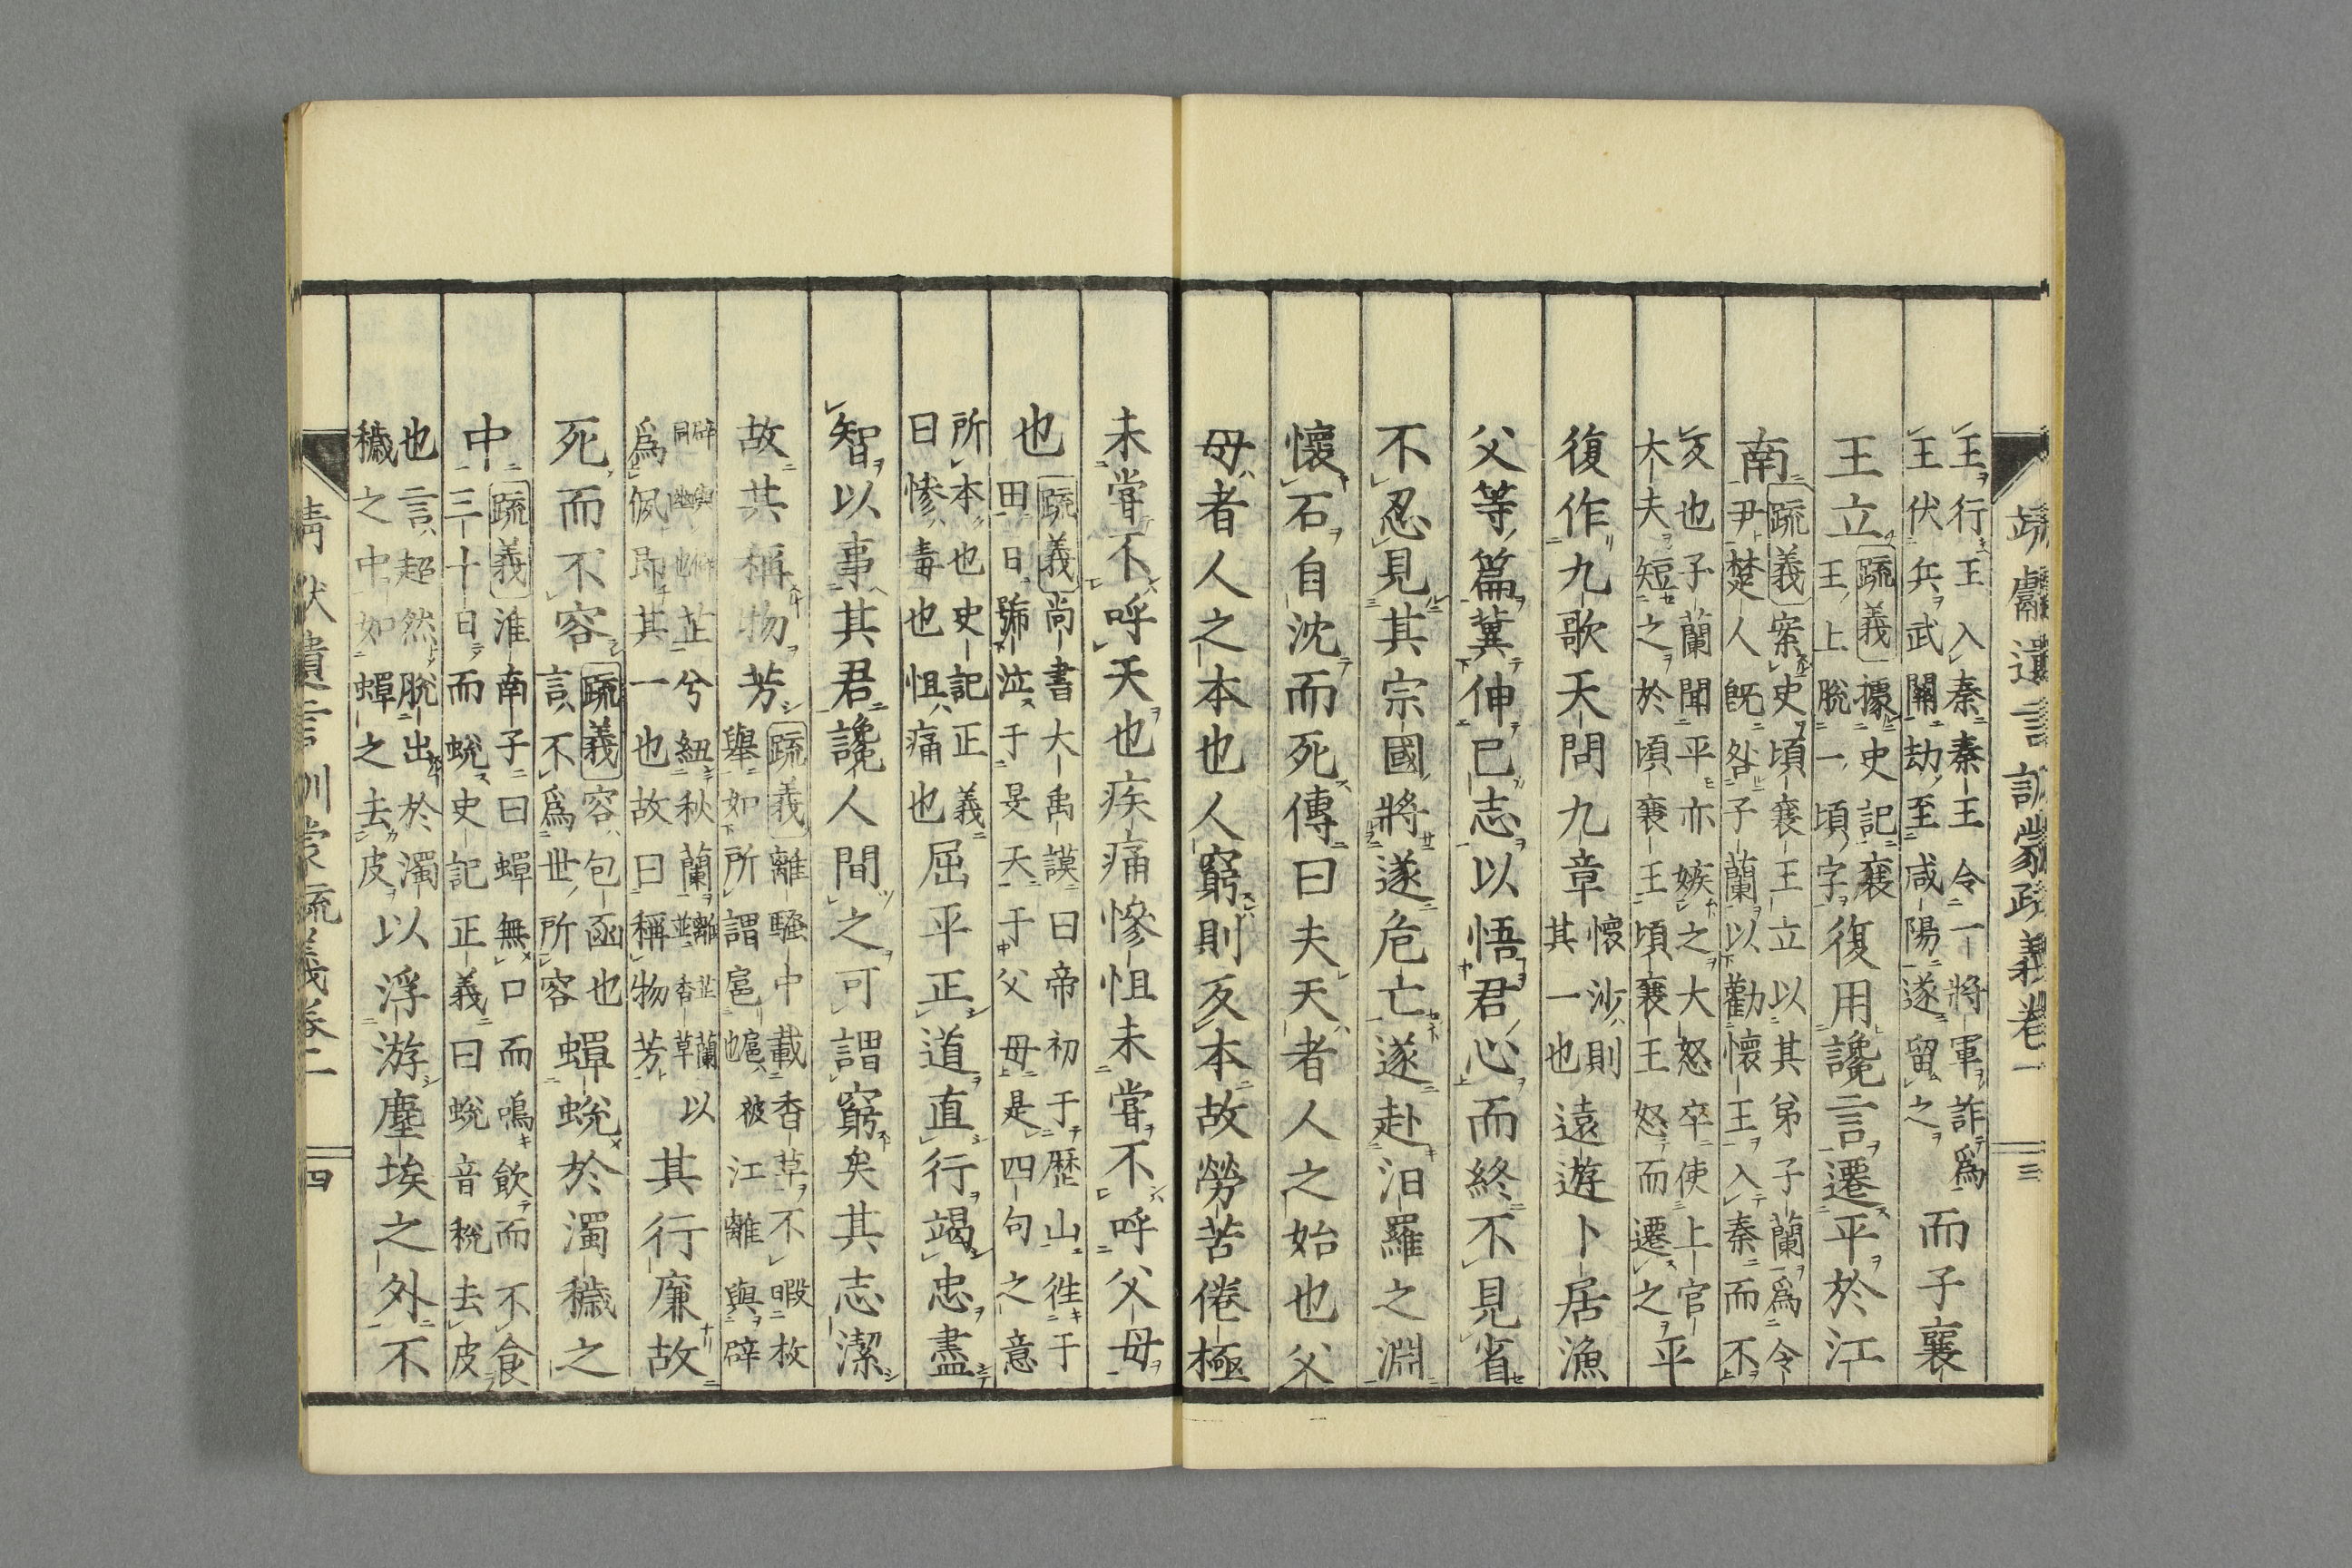 靖獻遺言訓蒙疏義卷一 三
王行王入秦秦王令一將軍詐爲
王伏兵武關劫至咸陽遂留之
而子襄
王立
疏義據史記襄
王上脫一頃字
復用讒言遷平於江
南
疏義案史頃襄王立以其弟子蘭爲令
尹楚人既咎子蘭以勸懷王入秦而不
反也子蘭聞平亦嫉之大怒卒使上官
大夫短之於頃襄王頃襄王怒而遷之
平
復作九歌天問九章
懷沙則
其一也
遠遊卜居漁
父等篇冀伸已志以悟君心而終不見省
不忍見其宗國將遂危亡遂赴汨羅之淵
懷石自沈而死傳曰夫天者人之始也父
母者人之本也人窮則反本故勞苦倦極
未嘗不呼天也疾痛慘怛未嘗不呼父母
也
疏義尚書大禹謨曰帝初于歷山往于
田日號泣于旻天于父母是四句之意
所本也史記正義
曰慘毒也怛痛也
屈平正道直行竭忠盡
智以事其君讒人間之可謂窮矣其志潔
故其稱物芳
疏義離騷中載香草不暇枚
擧如所謂扈扈也被江離與辟
辟與僻
同幽也
芷兮紉秋蘭離芷蘭
並香草
以
爲佩即其一也故曰稱物芳
其行廉故
死而不容
疏義容包函也
言不爲世所容
蟬蛻於濁穢之
中
疏義淮南子曰蟬無口而鳴飮而不食
三十日而蛻史記正義曰蛻音稅去皮
也言超然脫出於濁
穢之中如蟬之去皮
以浮游塵埃之外不
靖獻遺言訓蒙疏義卷一 四